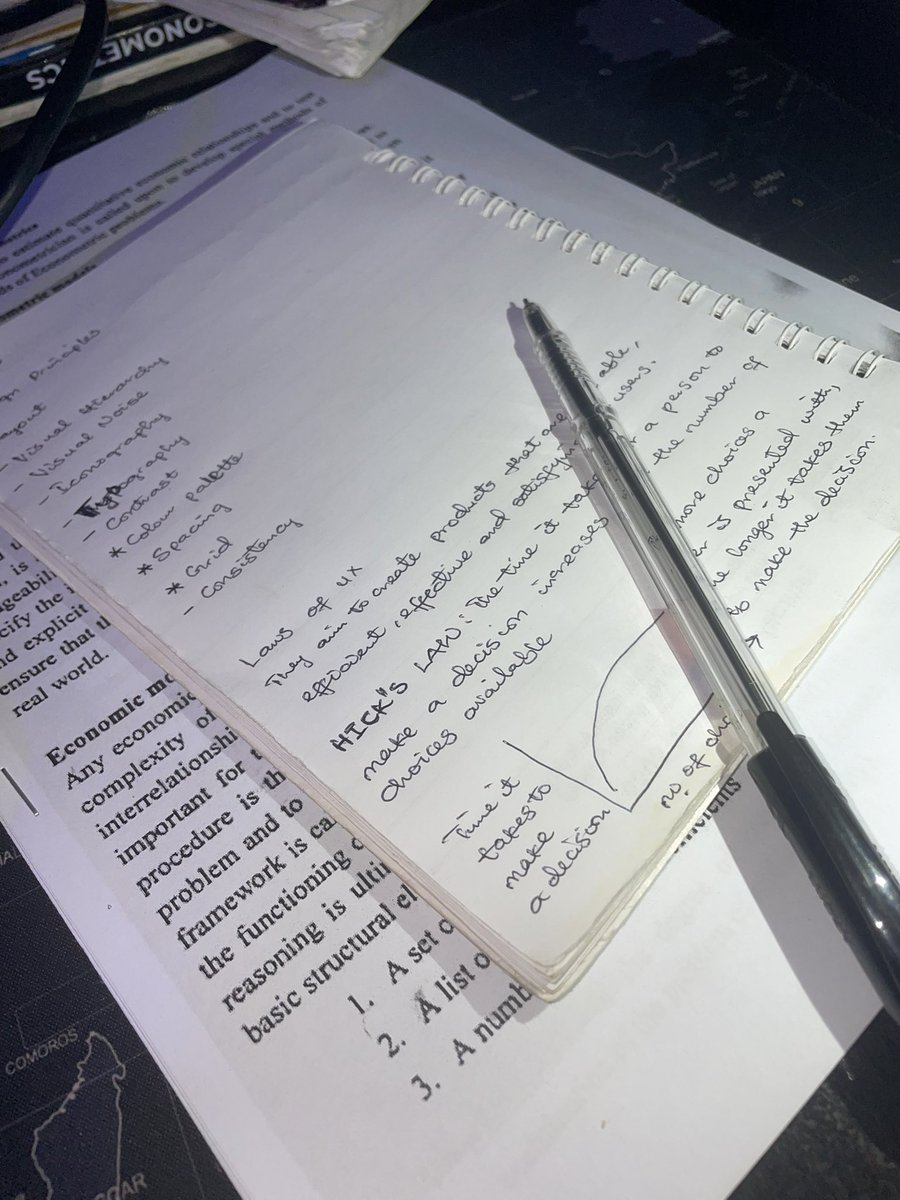 ECONOMETRICS
estimate quantitative economic relationships
onometrician is called upon to develop special
of Econometric problems
ometric models
Principles
- Visual Hierarchy
- Visual Noise
- Iconography
- Typography
- Contrast
* Colour palette
* Spacing
* Grid
- Consistency
Laws of UX
They aim to create products that are able,
efficient, effective and satisfy users.
HICK'S LAW: The time it take a person to
make a decision increases the number of
choices available
more choices a
is presented with,
longer it takes them
to make the decision.
Time it
takes to
make
a decision
no. of
is
cify the
nd explicit
ensure that
real world.
Economic
Any economic
complexity of
interrelationshi
important for
procedure is th
problem and to
framework is ca
the functioning
reasoning is ulti
basic structural el
1. A set o
2. A list o
3. A numb
JAPAN
COMOROS